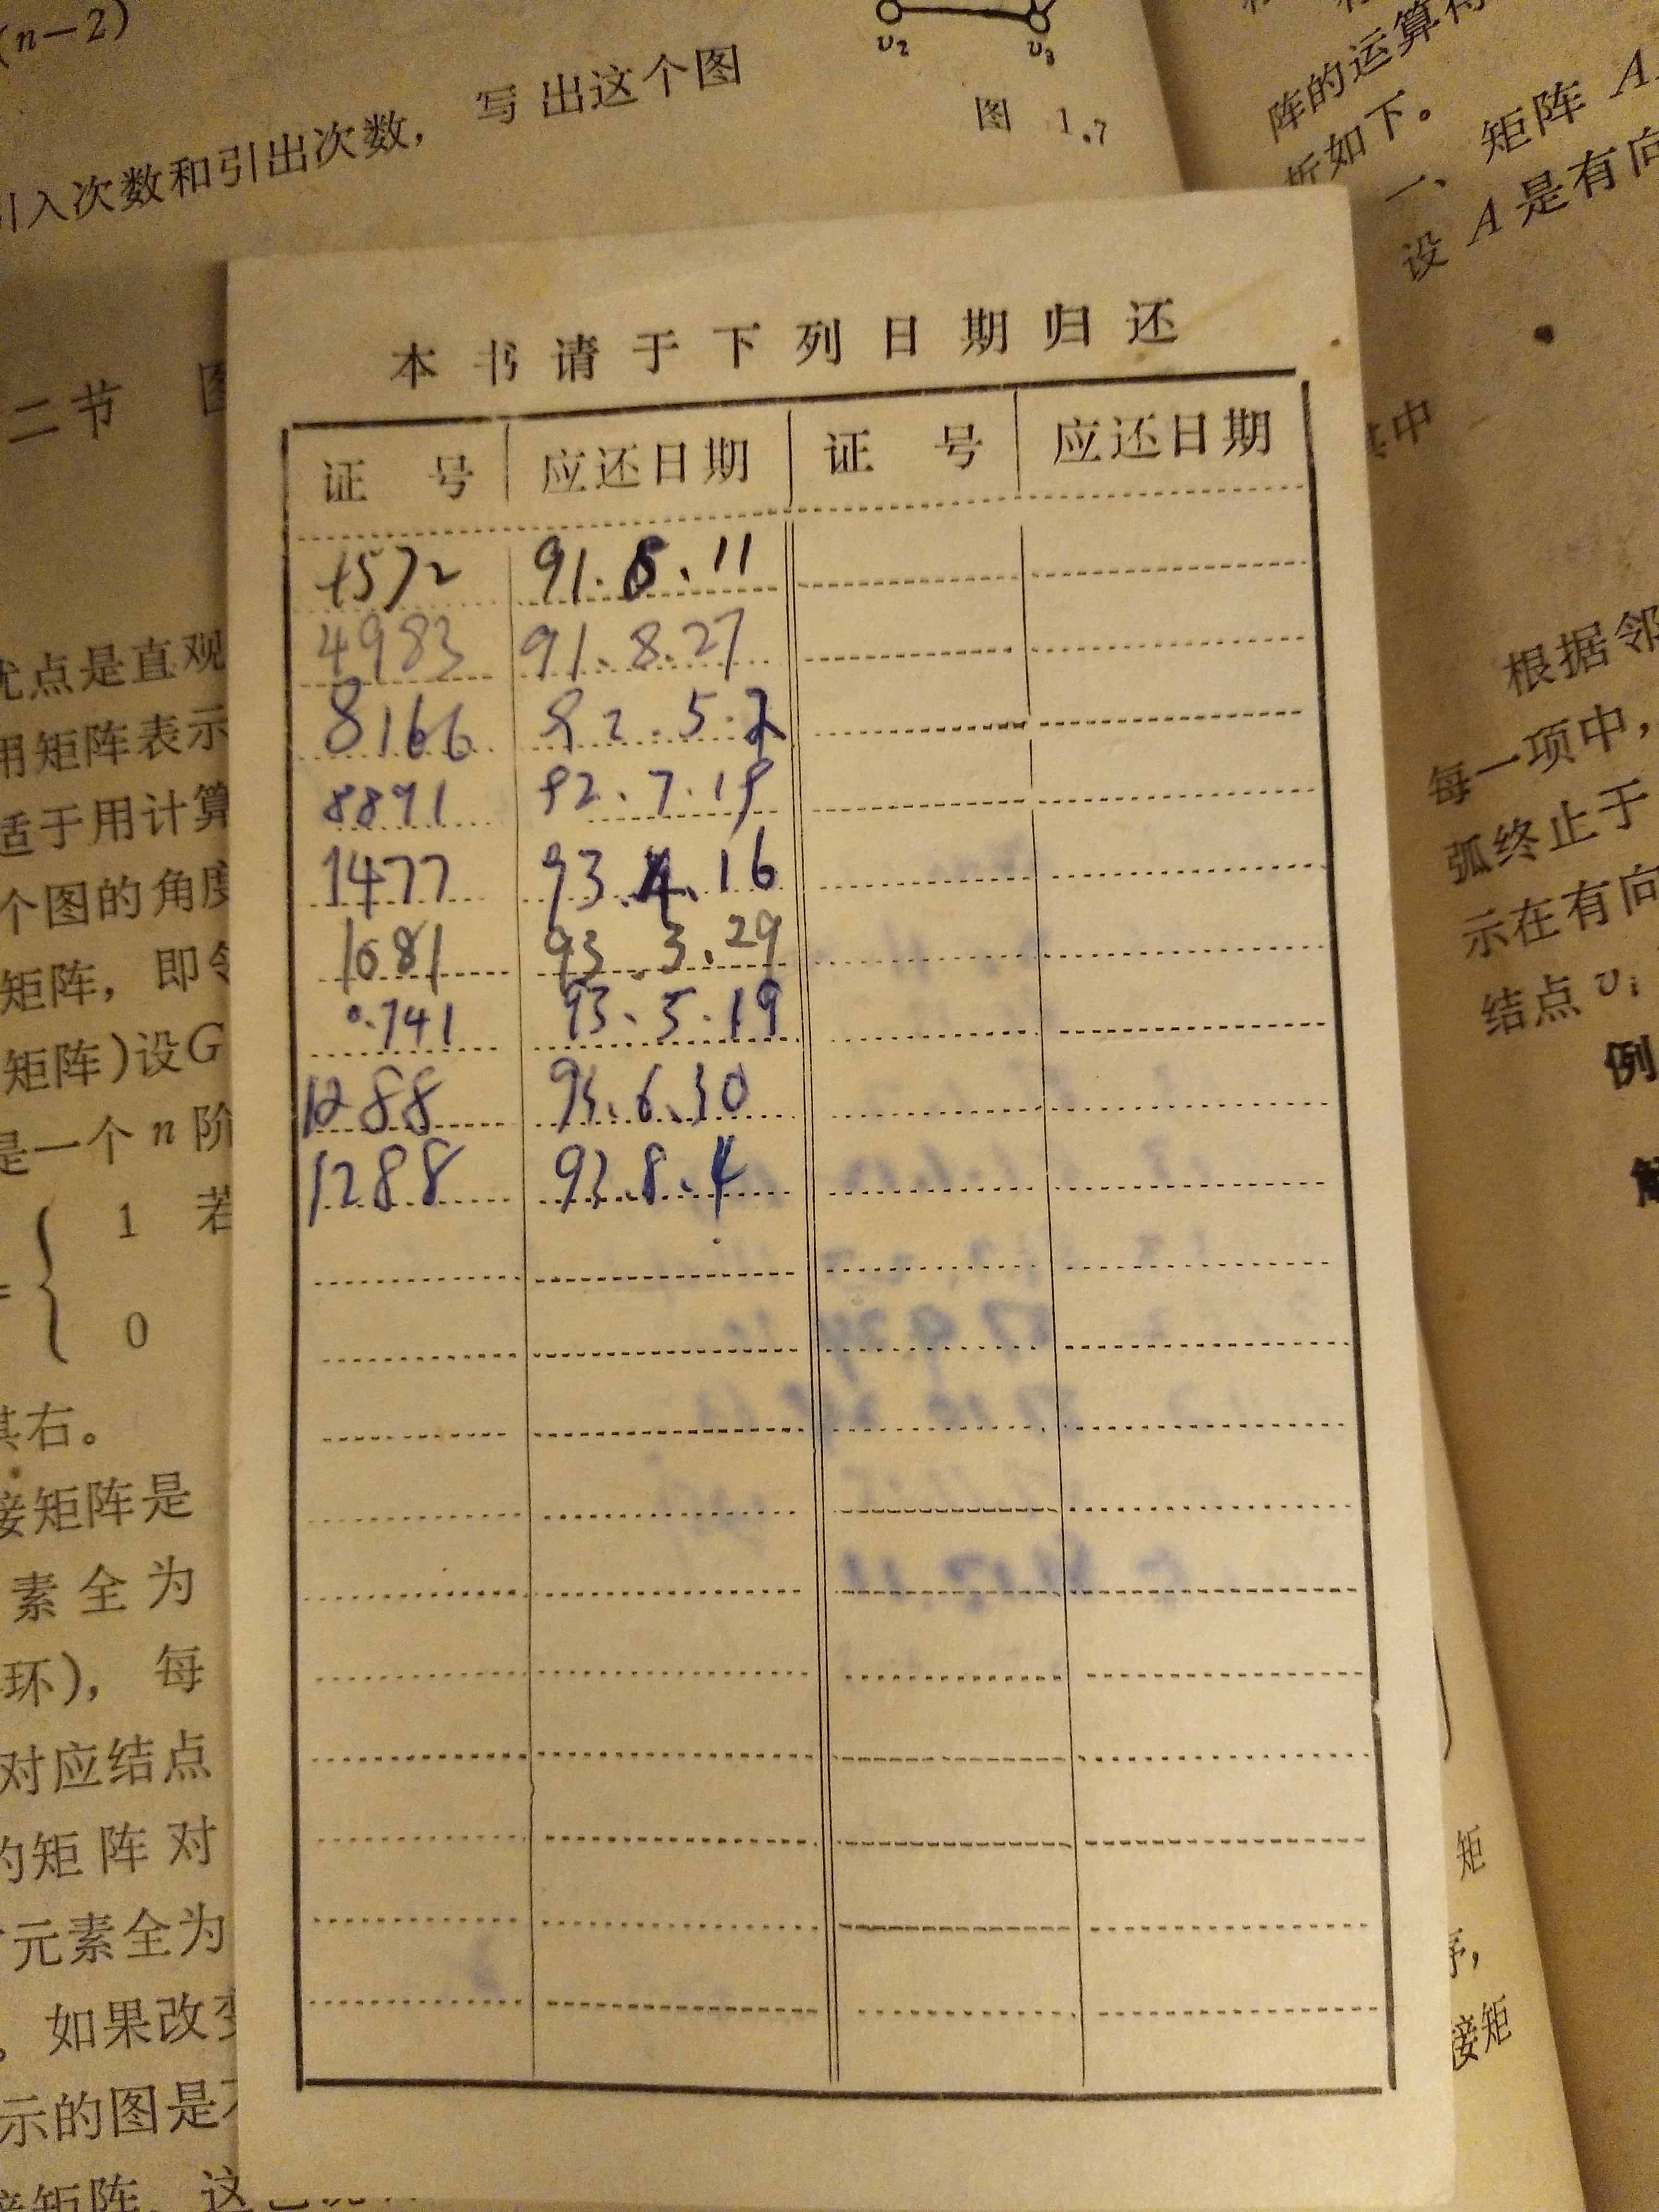 (n－2)
引入次数和引出次数，写出这个图
v₂ v₃
图 1.7
阵的运算
析如下。
一、矩阵 A
设 A 是有向
本书请于下列日期归还
证号 应还日期 证号 应还日期
1572 91.8.11
4983 91.8.27
8166 92.5.2
8891 92.7.19
1477 93.4.16
1681 93.3.29
0741 93.5.19
1288 93.6.30
1288 93.8.4
二节
优点是直观
用矩阵表示
适于用计算
个图的角度
矩阵，即
矩阵)设G
是一个 n 阶
1 若
0
其右。
接矩阵是
素全为
环)，每
对应结点
的矩阵对
元素全为
。如果改变
示的图是
接矩阵，这
其中
根据邻
每一项中，
弧终止于
示在有向
结点 vᵢ
例
解
矩
序，
接矩